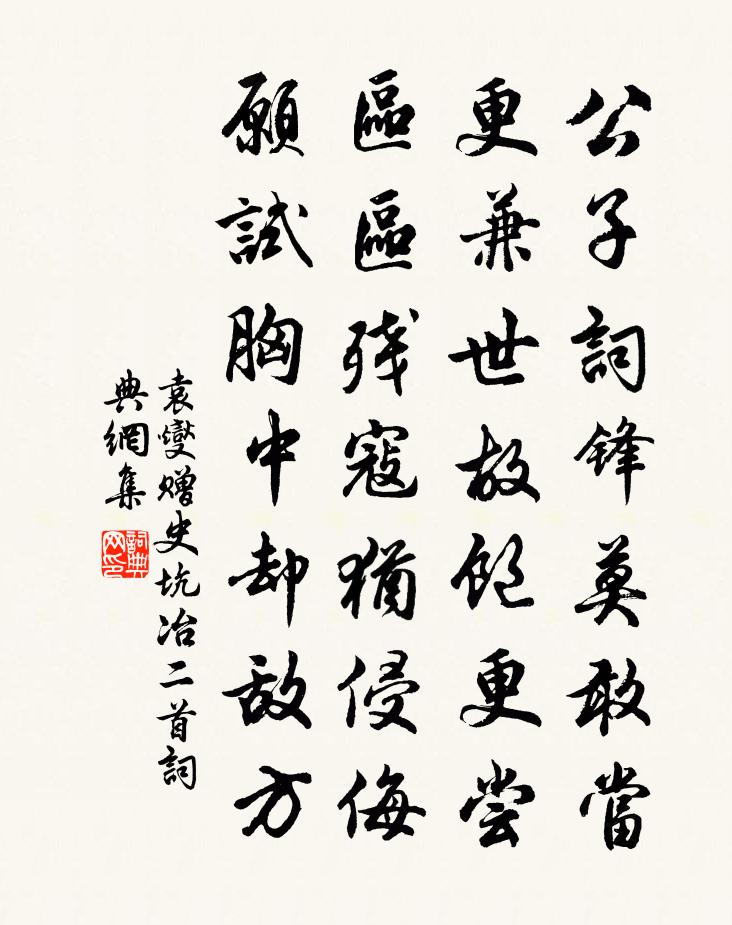 公子詞鋒莫敢當
更兼世故飽更尝
區區残寇猶侵侮
願試胸中却敌方
袁燮赠史坑冶二首詞
典網集
詞典
网印